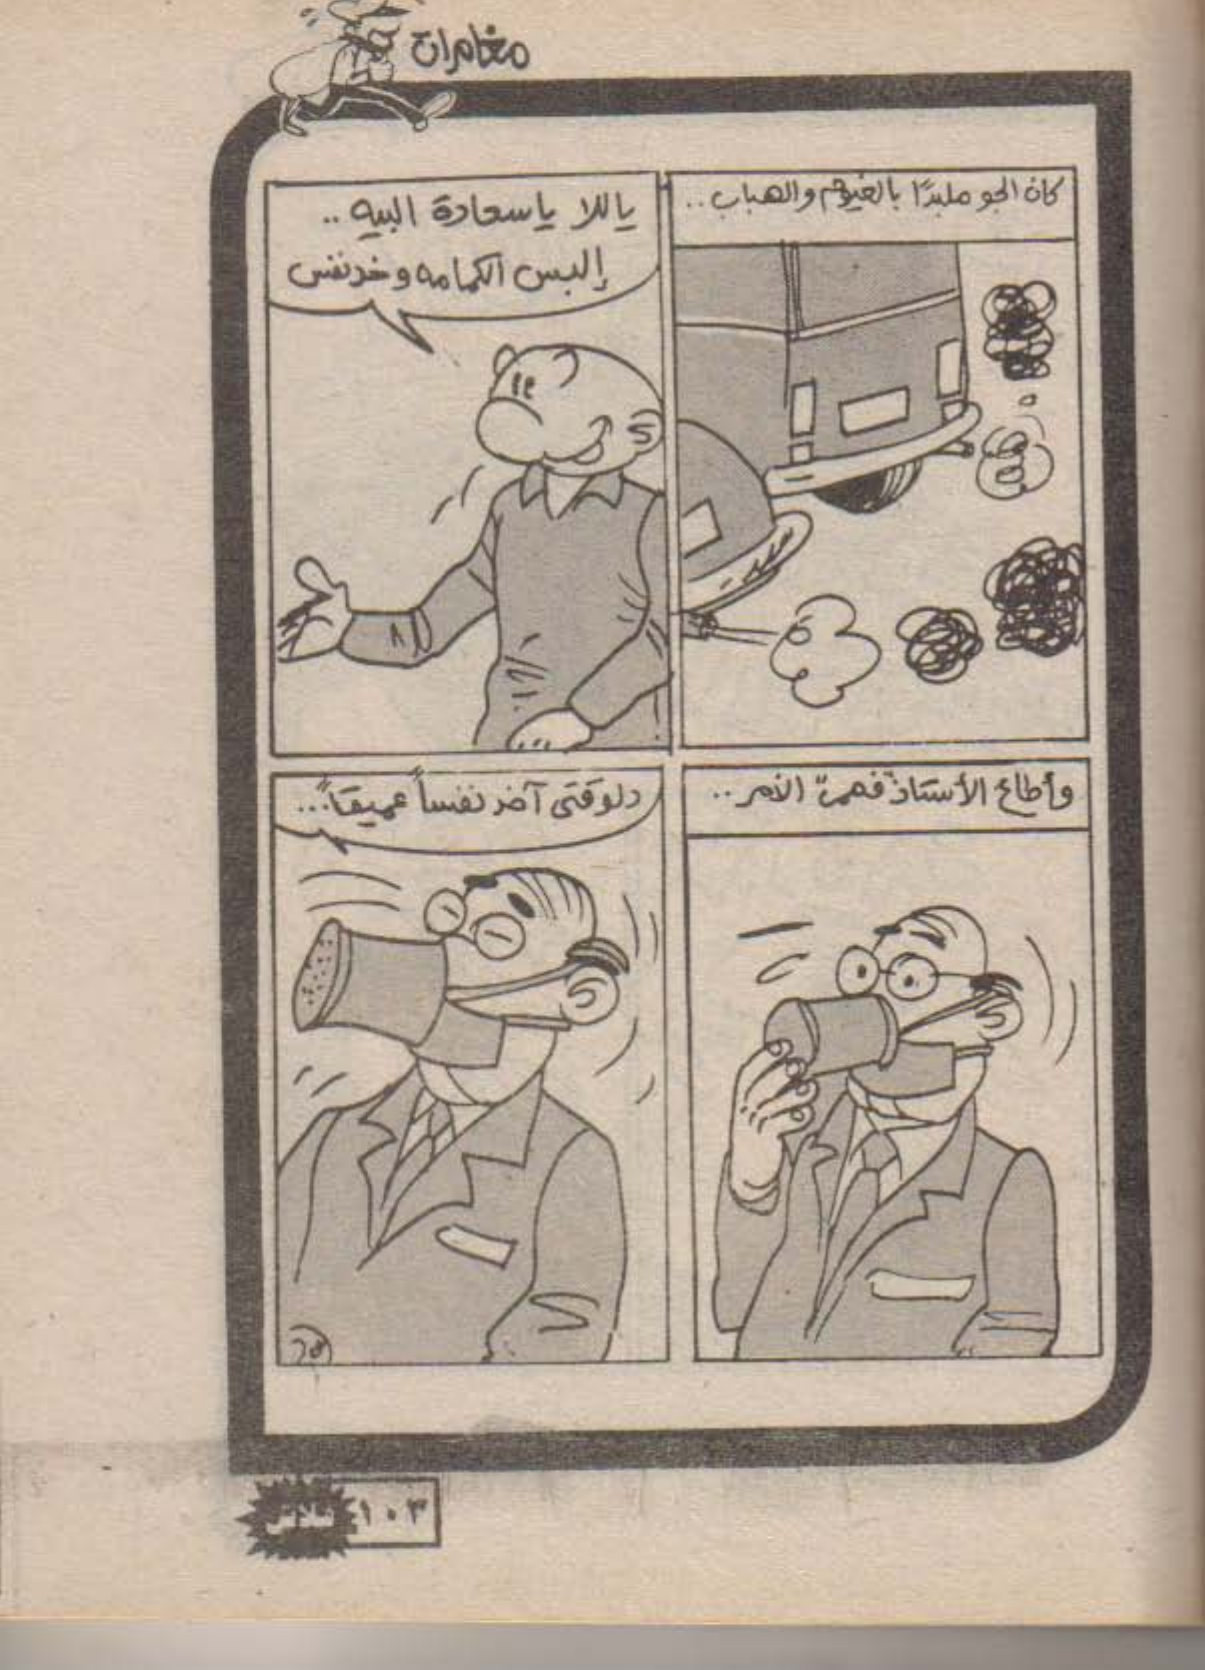 مغامرات
كان الجو ملبدًا بالغيوم والهباب..
ياللا ياسعادة البيه..
إلبس الكمامه وخد نفس
وأطاع الأستاذ "فهمى" الأمر..
دلوقتى آخد نفساً عميقاً...
١٠٣
فلاش